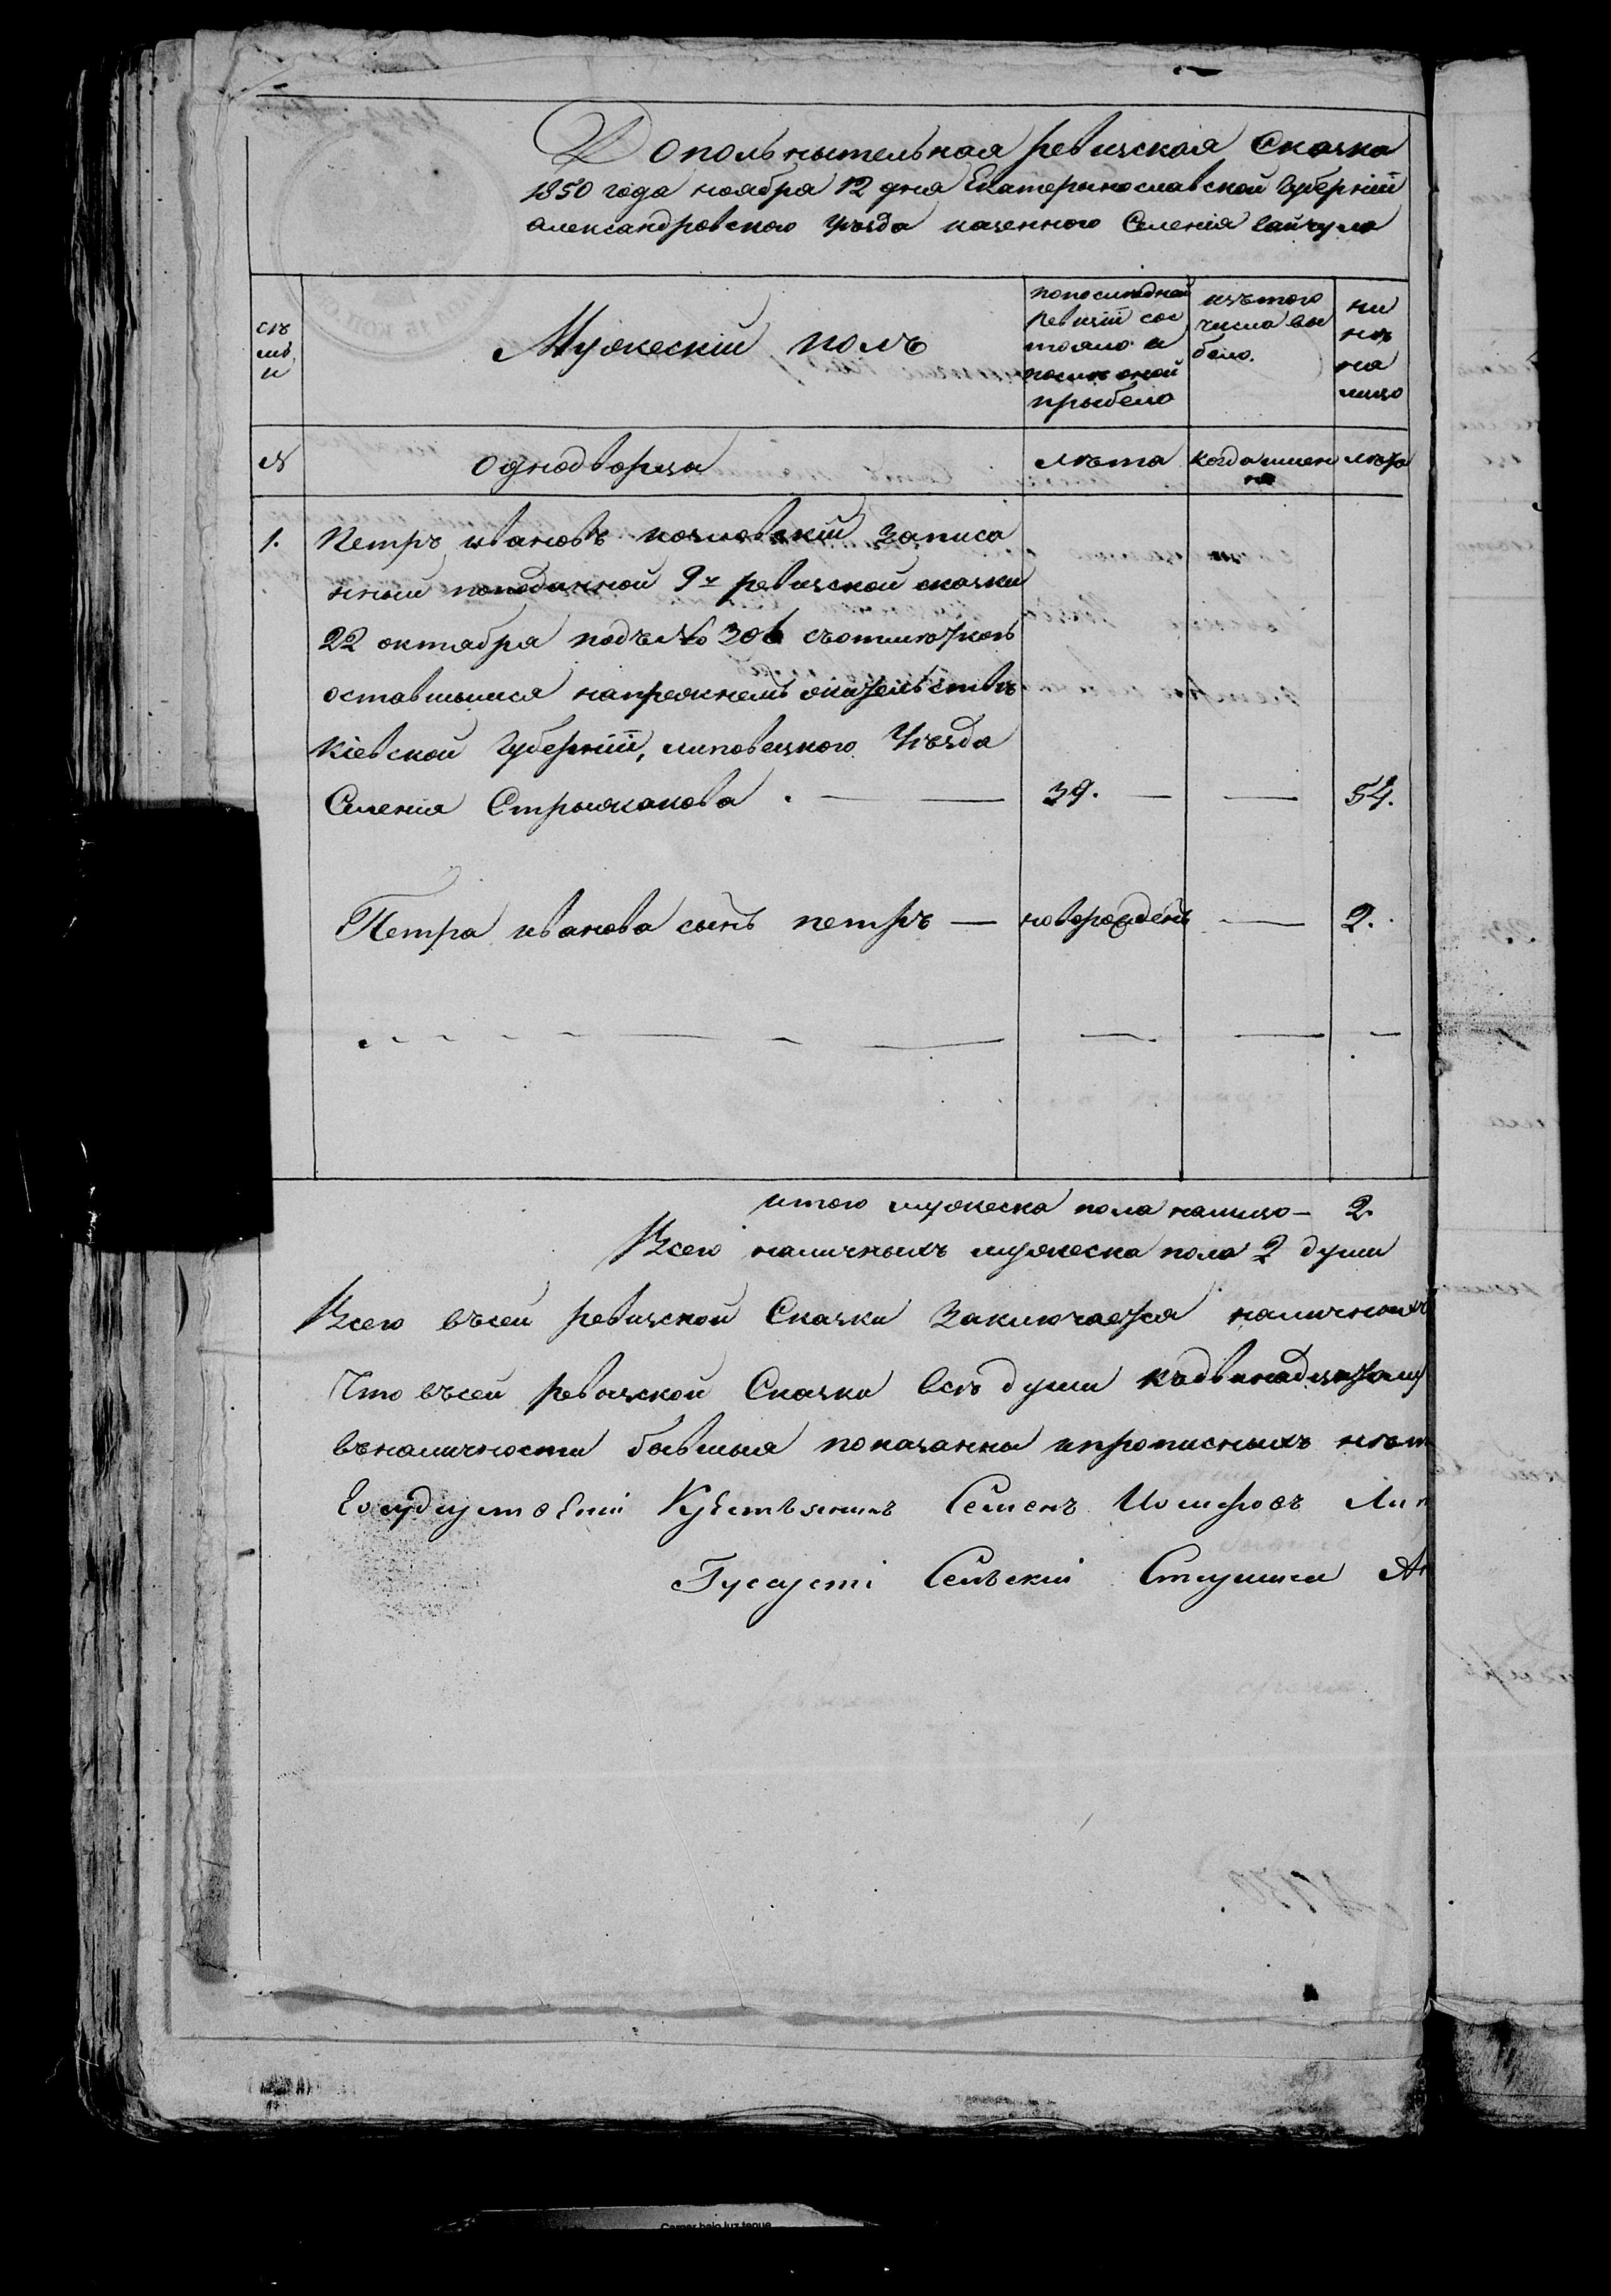 Дополнытельная ревизская Сказка
1850 года ноября 12 дня Екатерынославской Губерніи
александровского уъзда казенного Селенія Гайчула
съ
мь
и
Мужескій полъ
попоследней
ревизіи сос
тояло и
после оной
прыбело
изътого
числа вы
бело.
ны
нъ
на
лицо
№
однодворца
лъта
когда имен
но
лъта
1. Петръ ивановъ козловскій записа
нный поподанной 9й ревизской сказки
22 октября подъ № 306 съотметкою
оставшымися напрежнемъ жительствъ
Кіевской Губерніи, липовецкого Уъзда
Селенія Стрыжакова . — — 39. — — 54.
Петра иванова сынъ петръ — новорожденъ — 2.
итого мужеска пола налицо — 2.
Всего наличныхъ мужеска пола 2 души
Всего въсей ревизской Сказки Заключается наличныхъ
Что въсей ревизской Сказки всъ души къдвенадцатому
въналичности бывшыя показанны ипрописныхъ нът
Крестьянинъ Семенъ
Сельскій Старшина